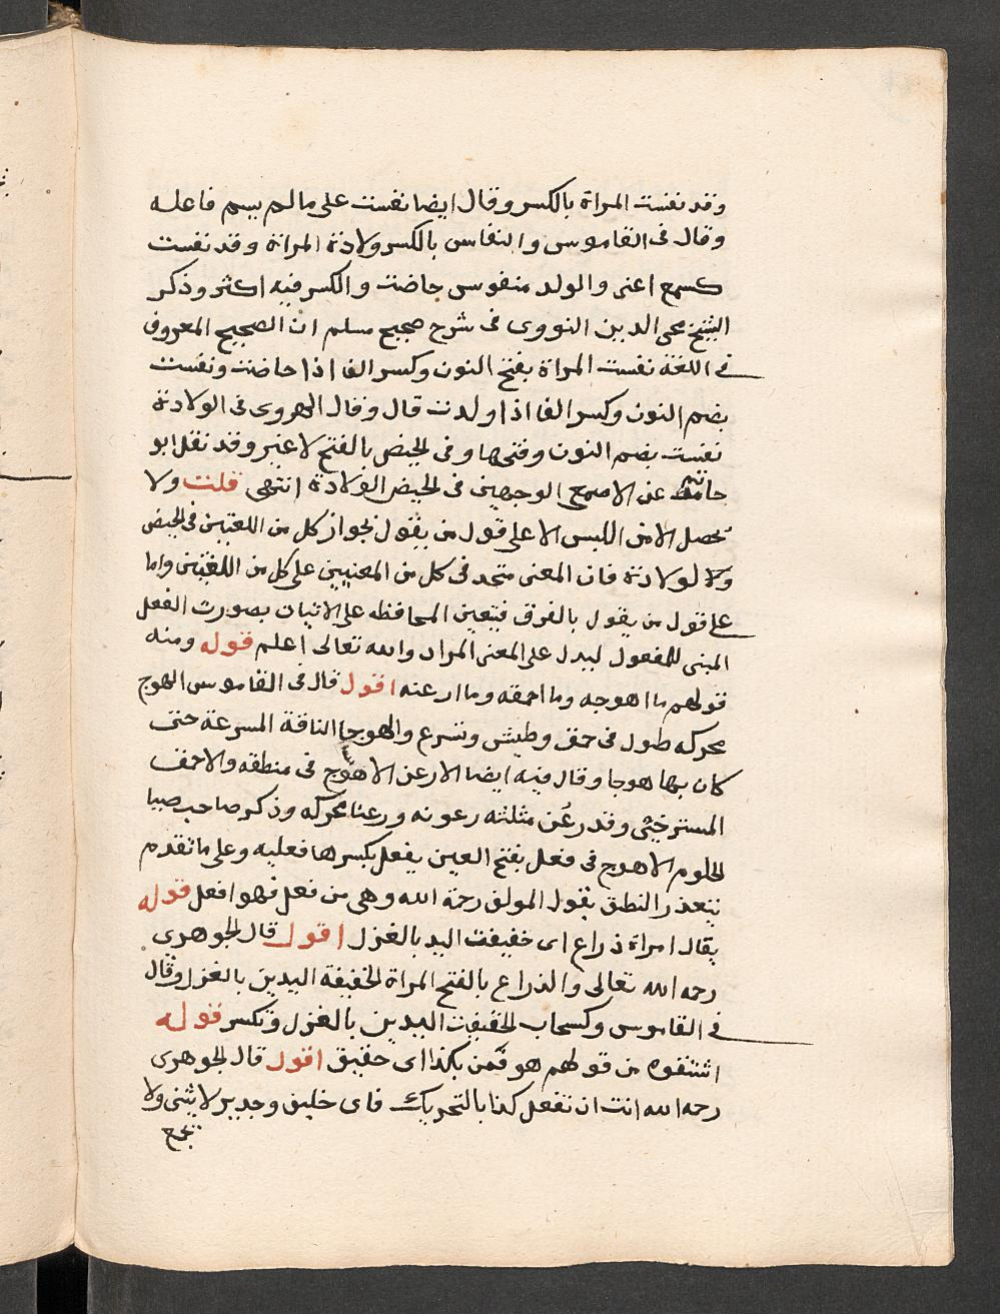 وقد نفست المراة بالكسر وقال ايضا نفست على ما لم يسم فاعله
وقال فى القاموس والنفاس بالكسر ولادة المراة وقد نفست
كسمع اعنى والولد منفوس حاضت والكسر فيه اكثر وذكر
الشيخ محى الدين النووى فى شرح صحيح مسلم ان الصحيح المعروف
فى اللغة نفست المراة بفتح النون وكسر الفا اذا حاضت ونفست
بضم النون وكسر الفا اذا ولدت قال وقال الهروى فى الولادة
نفست بضم النون وفتحها وفى الحيض بالفتح لا غير وقد نقل ابو
حاتم عن الاصمعى الوجهين فى الحيض الولادة انتهى قلت ولا
تحصل الامن اللبس الا على قول من يقول بجواز كل من اللغتين فى الحيض
ولا لولادة فان المعنى متحد فى كل من المعنيين على كل من اللغتين واما
على قول من يقول بالفرق فيتعين المحافظه على الاتيان بصورت الفعل
المبنى للمفعول ليدل على المعنى المراد والله تعالى اعلم قوله ومنه
قولهم ما اهوجه وما احمقه وما ارعنه اقول قال فى القاموس الهوج
محركه طول فى حمق وطيش وتسرع والهوجا الناقة المسرعة حتى
كان بها هوجا وقال فيه ايضا الارعن الاهوج فى منطقه والاحمق
المسترخى وقد رعن مثلثه رعونه ورعنا محركه وذكر صاحب ضيا
الحلوم الاهوج فى فعل بفتح العين يفعل بكسرها فعليه وعلى ما تقدم
يتعذر النطق بقول المولف رحمة الله وهى من فعل فهو افعل قوله
يقال امراة ذراع اى خفيفت اليد بالغزل اقول قال الجوهرى
رحمه الله تعالى والذراع بالفتح المراة الخفيفة اليدين بالغزل وقال
فى القاموس وكسحاب الخفيفت اليدين بالغزل وتكسر قوله
اشتقوه من قولهم هو قمن بكذا اى حقيق اقول قال الجوهرى
رحمه الله انت ان تفعل كذا بالتحريك فاى خليق وجدير لا يثنى ولا
يجمع